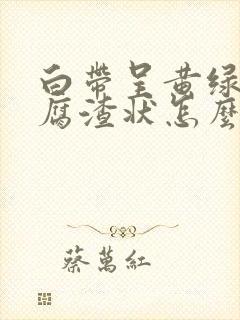 白帶呈黄绿
腐渣状怎麽
蔡萬紅